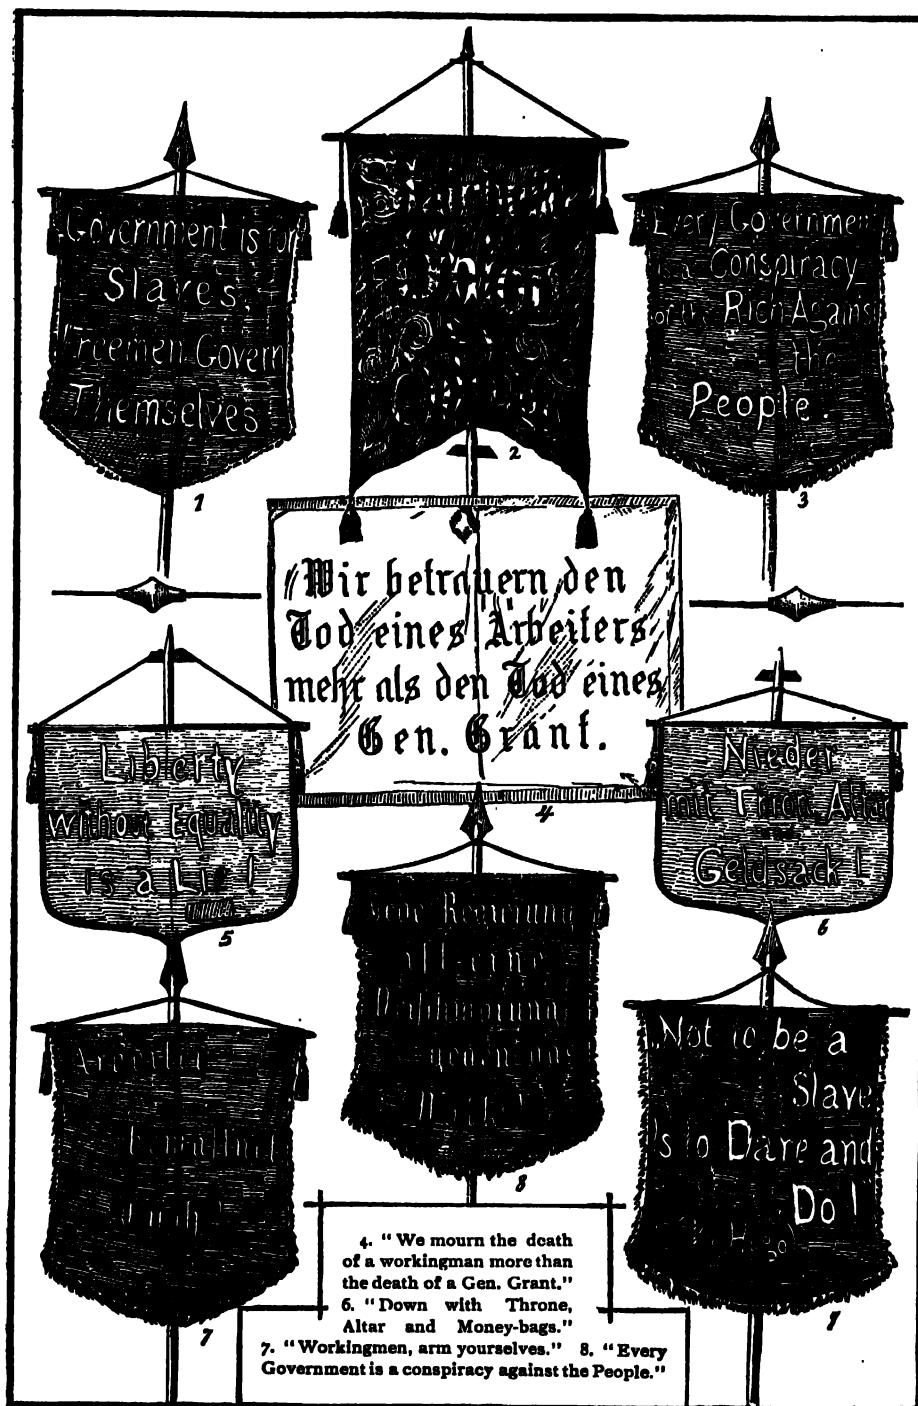 Government is for
Slaves.
Freemen Govern
Themselves
1
2
Every Government
is a Conspiracy
of the Rich Against
the
People.
3
Wir betrauern den
Tod eines Arbeiters
mehr als den Tod eines
Gen. Grant.
4
Liberty
without Equality
is a Lie!
5
Nieder
mit Thron, Altar
Geldsack!
6
Arbeiter
bewaffnet
Euch!
7
Jede Regierung
ist eine
Verschwörung
gegen das
8
Not to be a
Slave
is to Dare and
Do!
Hugo
9
4. "We mourn the death
of a workingman more than
the death of a Gen. Grant."
6. "Down with Throne,
Altar and Money-bags."
7. "Workingmen, arm yourselves." 8. "Every
Government is a conspiracy against the People."